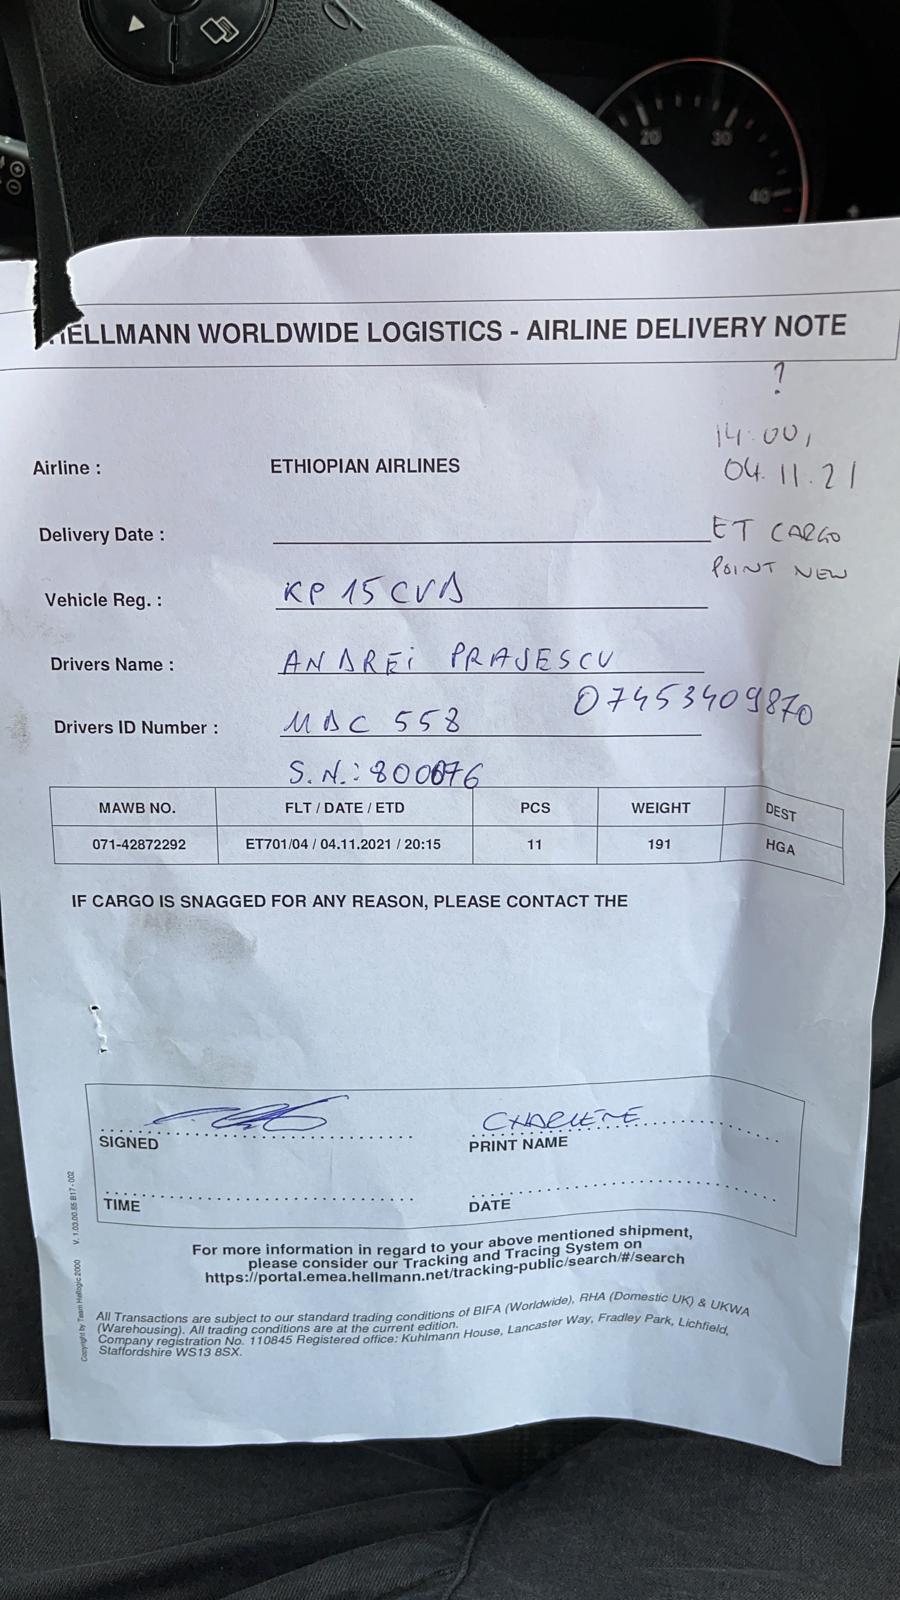 20
30
40
HELLMANN WORLDWIDE LOGISTICS - AIRLINE DELIVERY NOTE
?
14:00,
04.11.21
Airline : ETHIOPIAN AIRLINES
Delivery Date :
ET CARGO
POINT NEW
Vehicle Reg. : KP 15 CVA
Drivers Name : ANDREI PRAJESCU
07453409870
Drivers ID Number : MDC 558
S.N.: 800076
MAWB NO. FLT / DATE / ETD PCS WEIGHT DEST
071-42872292 ET701/04 / 04.11.2021 / 20:15 11 191 HGA
IF CARGO IS SNAGGED FOR ANY REASON, PLEASE CONTACT THE
CHARLENE
SIGNED PRINT NAME
TIME DATE
For more information in regard to your above mentioned shipment,
please consider our Tracking and Tracing System on
https://portal.emea.hellmann.net/tracking-public/search/#/search
All Transactions are subject to our standard trading conditions of BIFA (Worldwide), RHA (Domestic UK) & UKWA
(Warehousing). All trading conditions are at the current edition.
Company registration No. 110845 Registered office: Kuhlmann House, Lancaster Way, Fradley Park, Lichfield,
Staffordshire WS13 8SX.
Copyright by Team Hellogic 2000 V. 1.03.00.65 B17 - 002